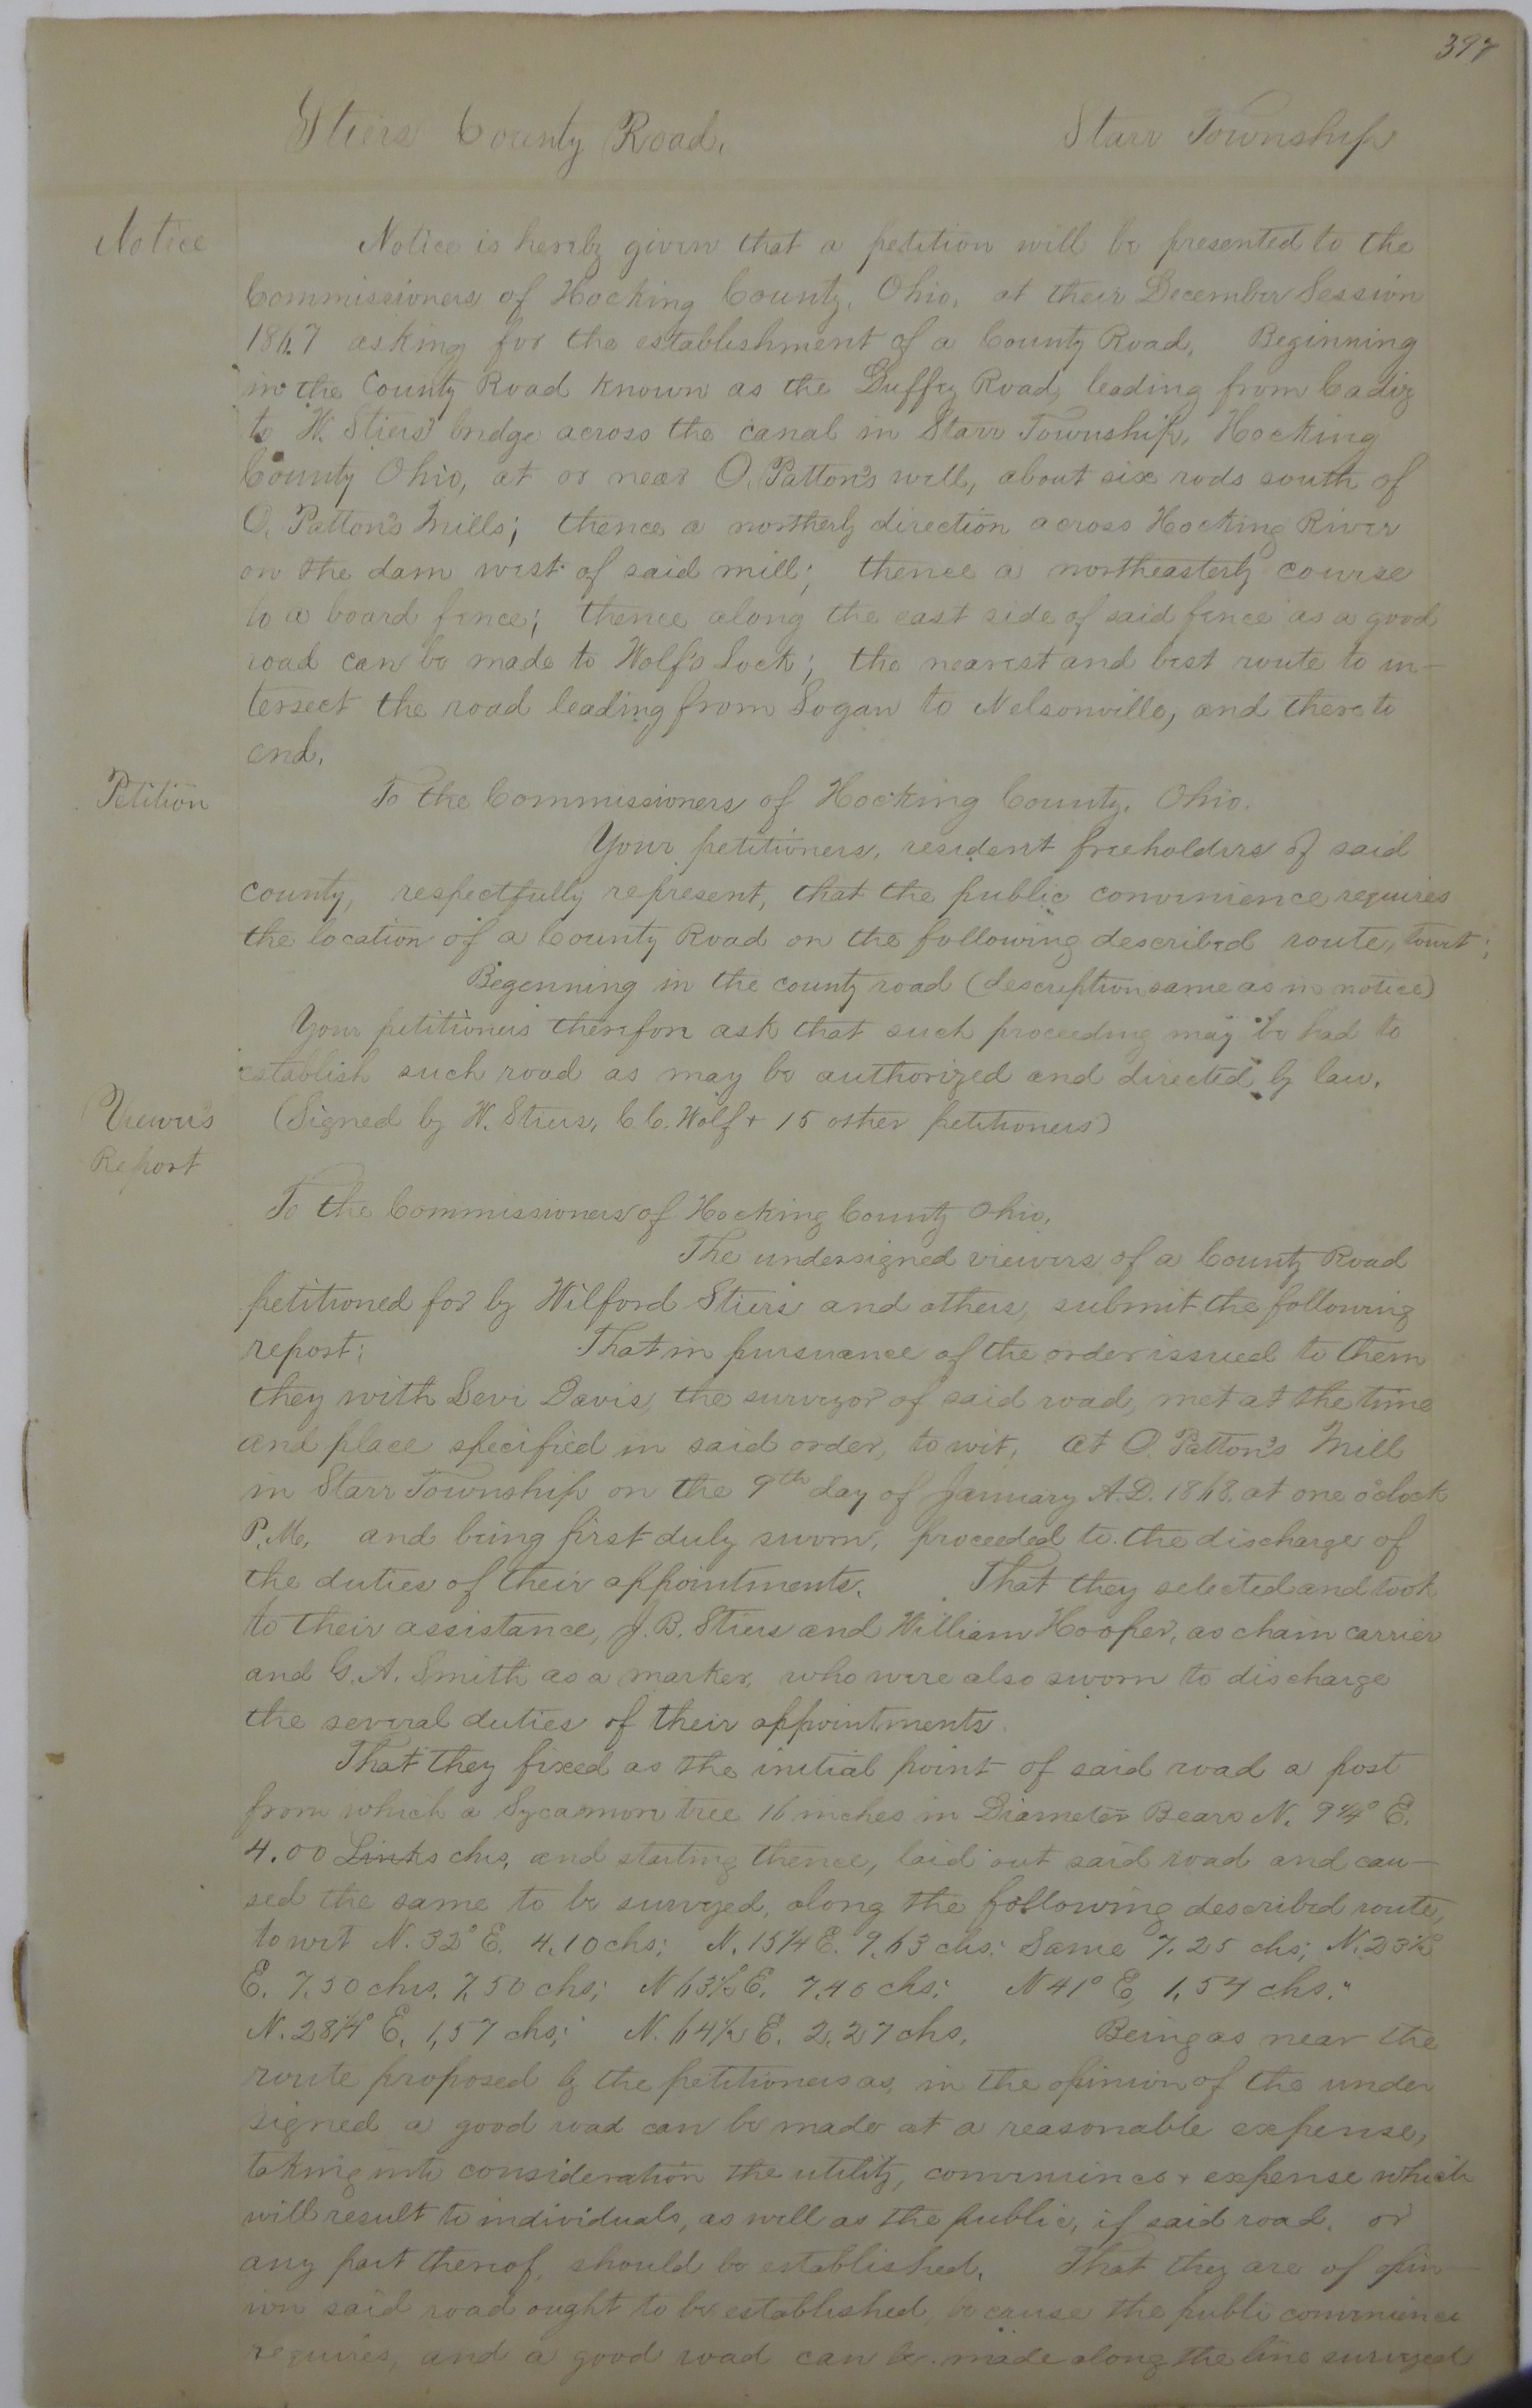 397
Stiers County Road. Starr Township
Notice
Notice is hereby given that a petition will be presented to the
Commissioners of Hocking County, Ohio, at their December Session
1867 asking for the establishment of a County Road, Beginning
in the County Road known as the Duffey Road, leading from Cadiz
to W. Stiers' bridge across the canal in Starr Township, Hocking
County Ohio, at or near O. Patton's well, about six rods south of
O. Patton's Mills; thence a northerly direction across Hocking River
on the dam west of said mill; thence a northeasterly course
to a board fence; thence along the east side of said fence as a good
road can be made to Wolf's Lock; the nearest and best route to in-
tersect the road leading from Logan to Nelsonville, and there to
end.
Petition
To the Commissioners of Hocking County, Ohio.
Your petitioners, resident freeholders of said
county, respectfully represent, that the public convenience requires
the location of a County Road on the following described route, towit;
Beginning in the county road (description same as in notice)
Your petitioners therefore ask that such proceeding may be had to
establish such road as may be authorized and directed by law.
Viewers
Report
(Signed by W. Stiers, C.C. Wolf + 15 other petitioners)
To the Commissioners of Hocking County Ohio,
The undersigned viewers of a County Road
petitioned for by Wilford Stiers and others, submit the following
report; That in pursuance of the order issued to them
they with Levi Davis, the surveyor of said road, met at the time
and place specified in said order, to wit, at O. Patton's Mill
in Starr Township on the 9th day of January A.D. 1868. at one o'clock
P.M. and being first duly sworn, proceeded to the discharge of
the duties of their appointments. That they selected and took
to their assistance, J.B. Stiers and William Hooper, as chain carrier
and G.A. Smith as a marker, who were also sworn to discharge
the several duties of their appointments.
That they fixed as the initial point of said road a post
from which a Sycamore tree 16 inches in Diameter Bears N. 9 1/4° E.
4.00 Links chs, and starting thence, laid out said road and cau-
sed the same to be surveyed, along the following described route,
to wit N. 32° E. 4.10 chs; N. 15 1/4 E. 9.63 chs: Same 7.25 chs; N. 23 1/2°
E. 7.50 chs. 7.50 chs; N 63 1/2° E. 7.40 chs; N 41° E, 1.54 chs;
N. 28 1/4° E. 1.57 chs; N. 64 1/2 E. 2.27 chs. Being as near the
route proposed by the petitioners as, in the opinion of the under
signed a good road can be made at a reasonable expense,
taking into consideration the utility, convenience + expense which
will result to individuals, as well as the public, if said road, or
any part thereof, should be established. That they are of opin-
ion said road ought to be established, because the public convenience
requires, and a good road can be made along the line surveyed